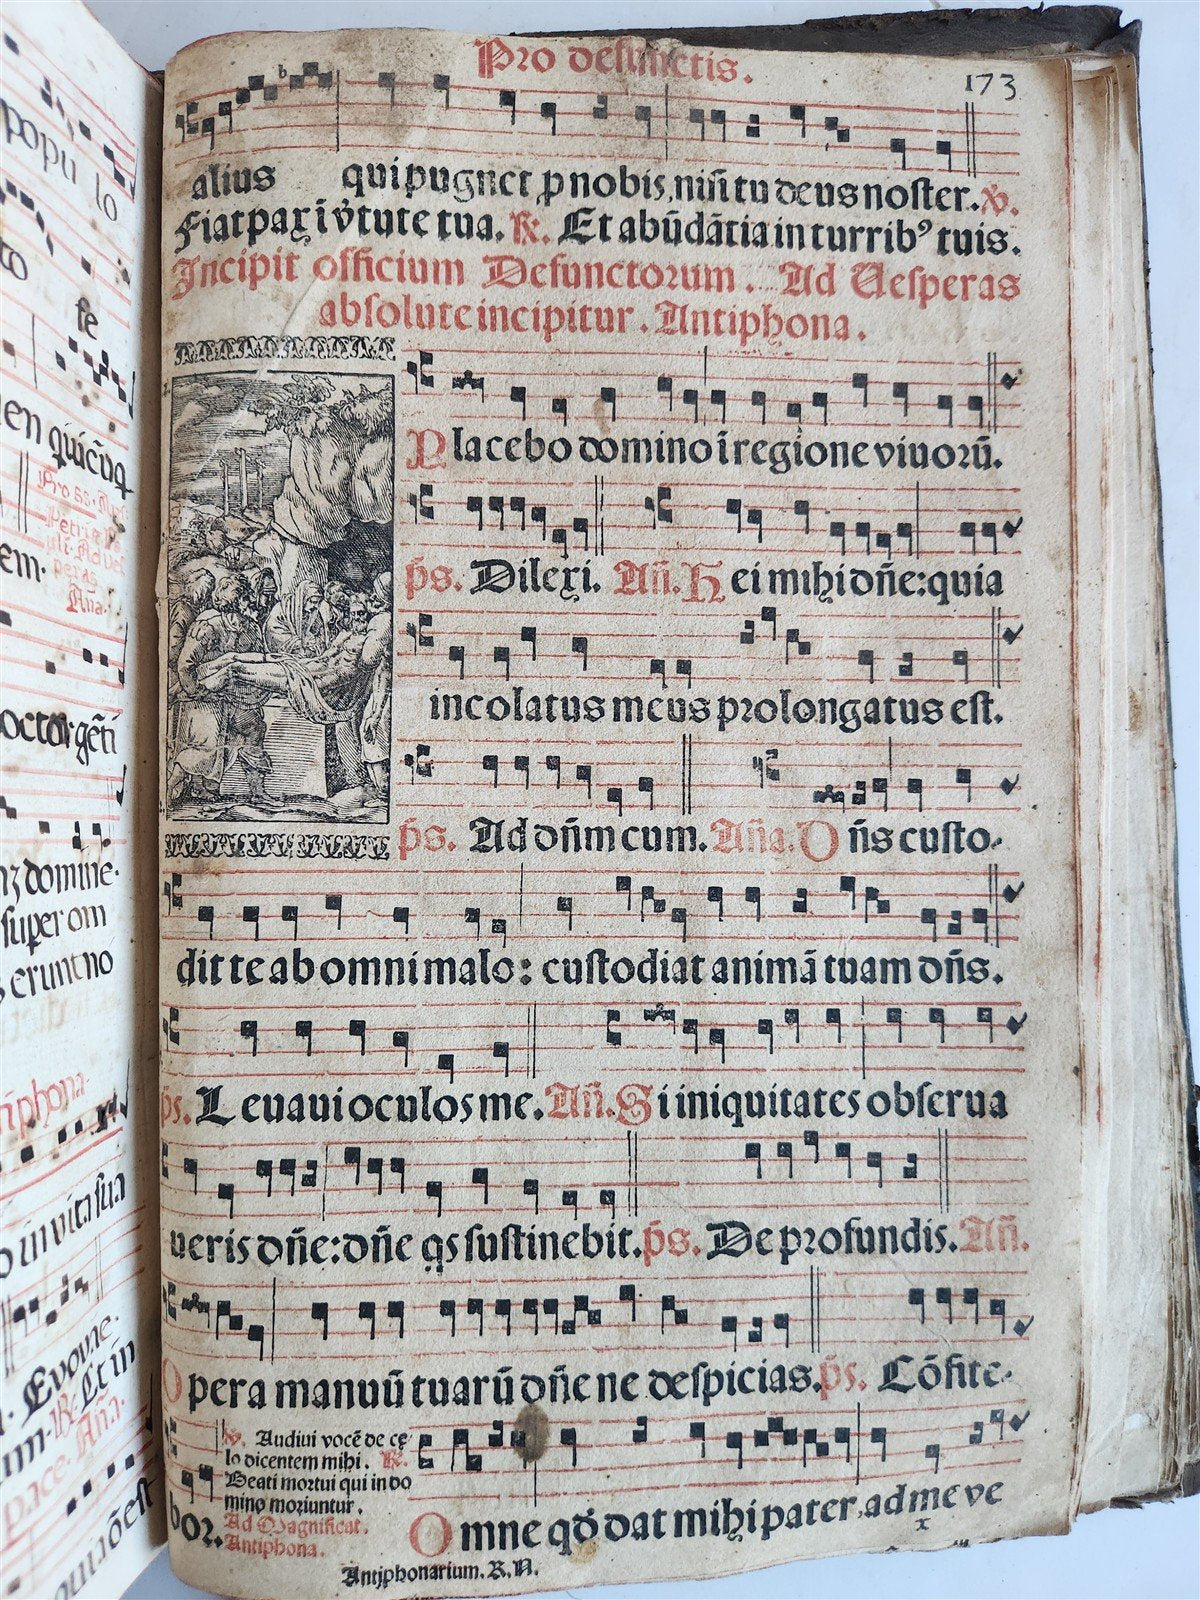 popu lo
to
fe
en quicūq
Pro ss. Apl.
Petri
ult. Ad Ves
peras
Aña.
em.
octor gēti
nz domine.
super om
s erunt nō
ñphona.
o in vita sua
Euouae.
℟. Et in
um. Aña.
pace.
Pro defunctis.
173
alius qui pugnet ꝓ nobis, nisi tu deus noster. ℣.
Fiat pax ī v̓tute tua. ℟. Et abūdātia in turribꝰ tuis.
Incipit officium Defunctorum. Ad Vesperas
absolute incipitur. Antiphona.
Placebo domino ī regione viuorū.
p̄s. Dilexi. Añ. Hei mihi dñe: quia
incolatus meus prolongatus est.
p̄s. Ad dñm cum. Aña. Dñs custo-
dit te ab omni malo: custodiat animā tuam dñs.
p̄s. Leuaui oculos me. Añ. Si iniquitates obserua
ueris dñe: dñe qs sustinebit. p̄s. De profundis. Añ.
Opera manuū tuarū dñe ne despicias. p̄s. Cōfite-
bor.
℣. Audiui vocē de cę
lo dicentem mihi. ℟.
Beati mortui qui in do
mino moriuntur.
Ad Magnificat.
Antiphona.
Omne qđ dat mihi pater, ad me ve
Antiphonarium. R.N.
x